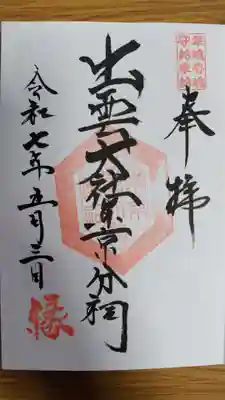 奉拝
出雲大社東京分祠
令和七年五月三日
縁